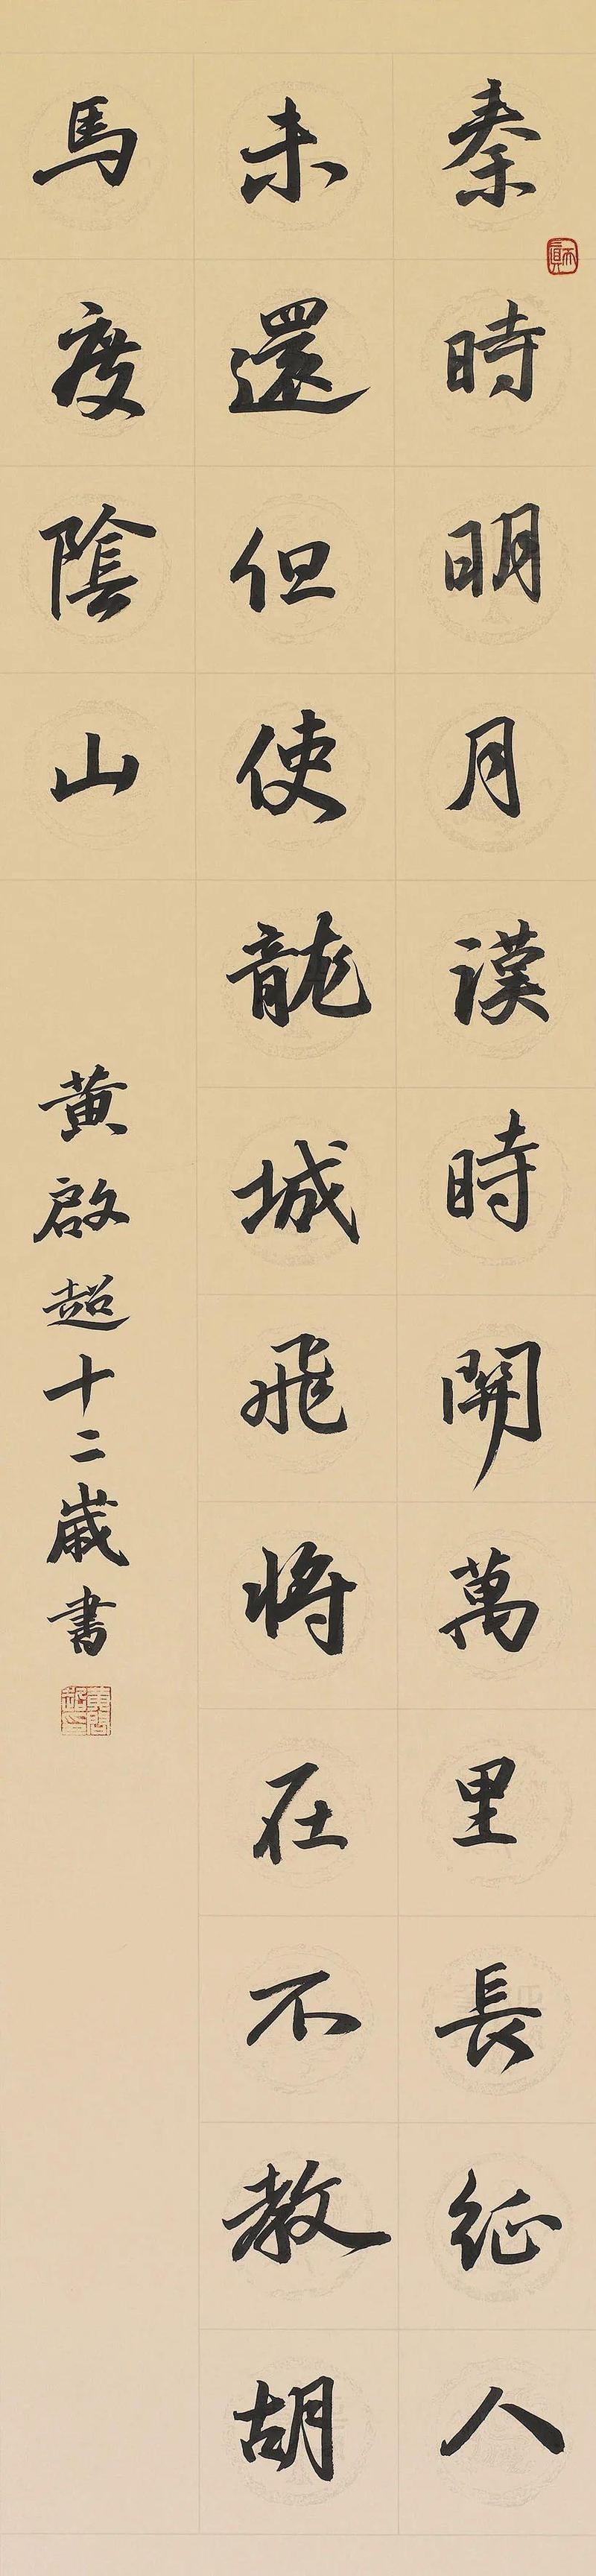 秦時明月漢時關萬里長征人
未還但使龍城飛將在不教胡
馬度陰山
黃啟超十二歲書
天真
黃啟超印